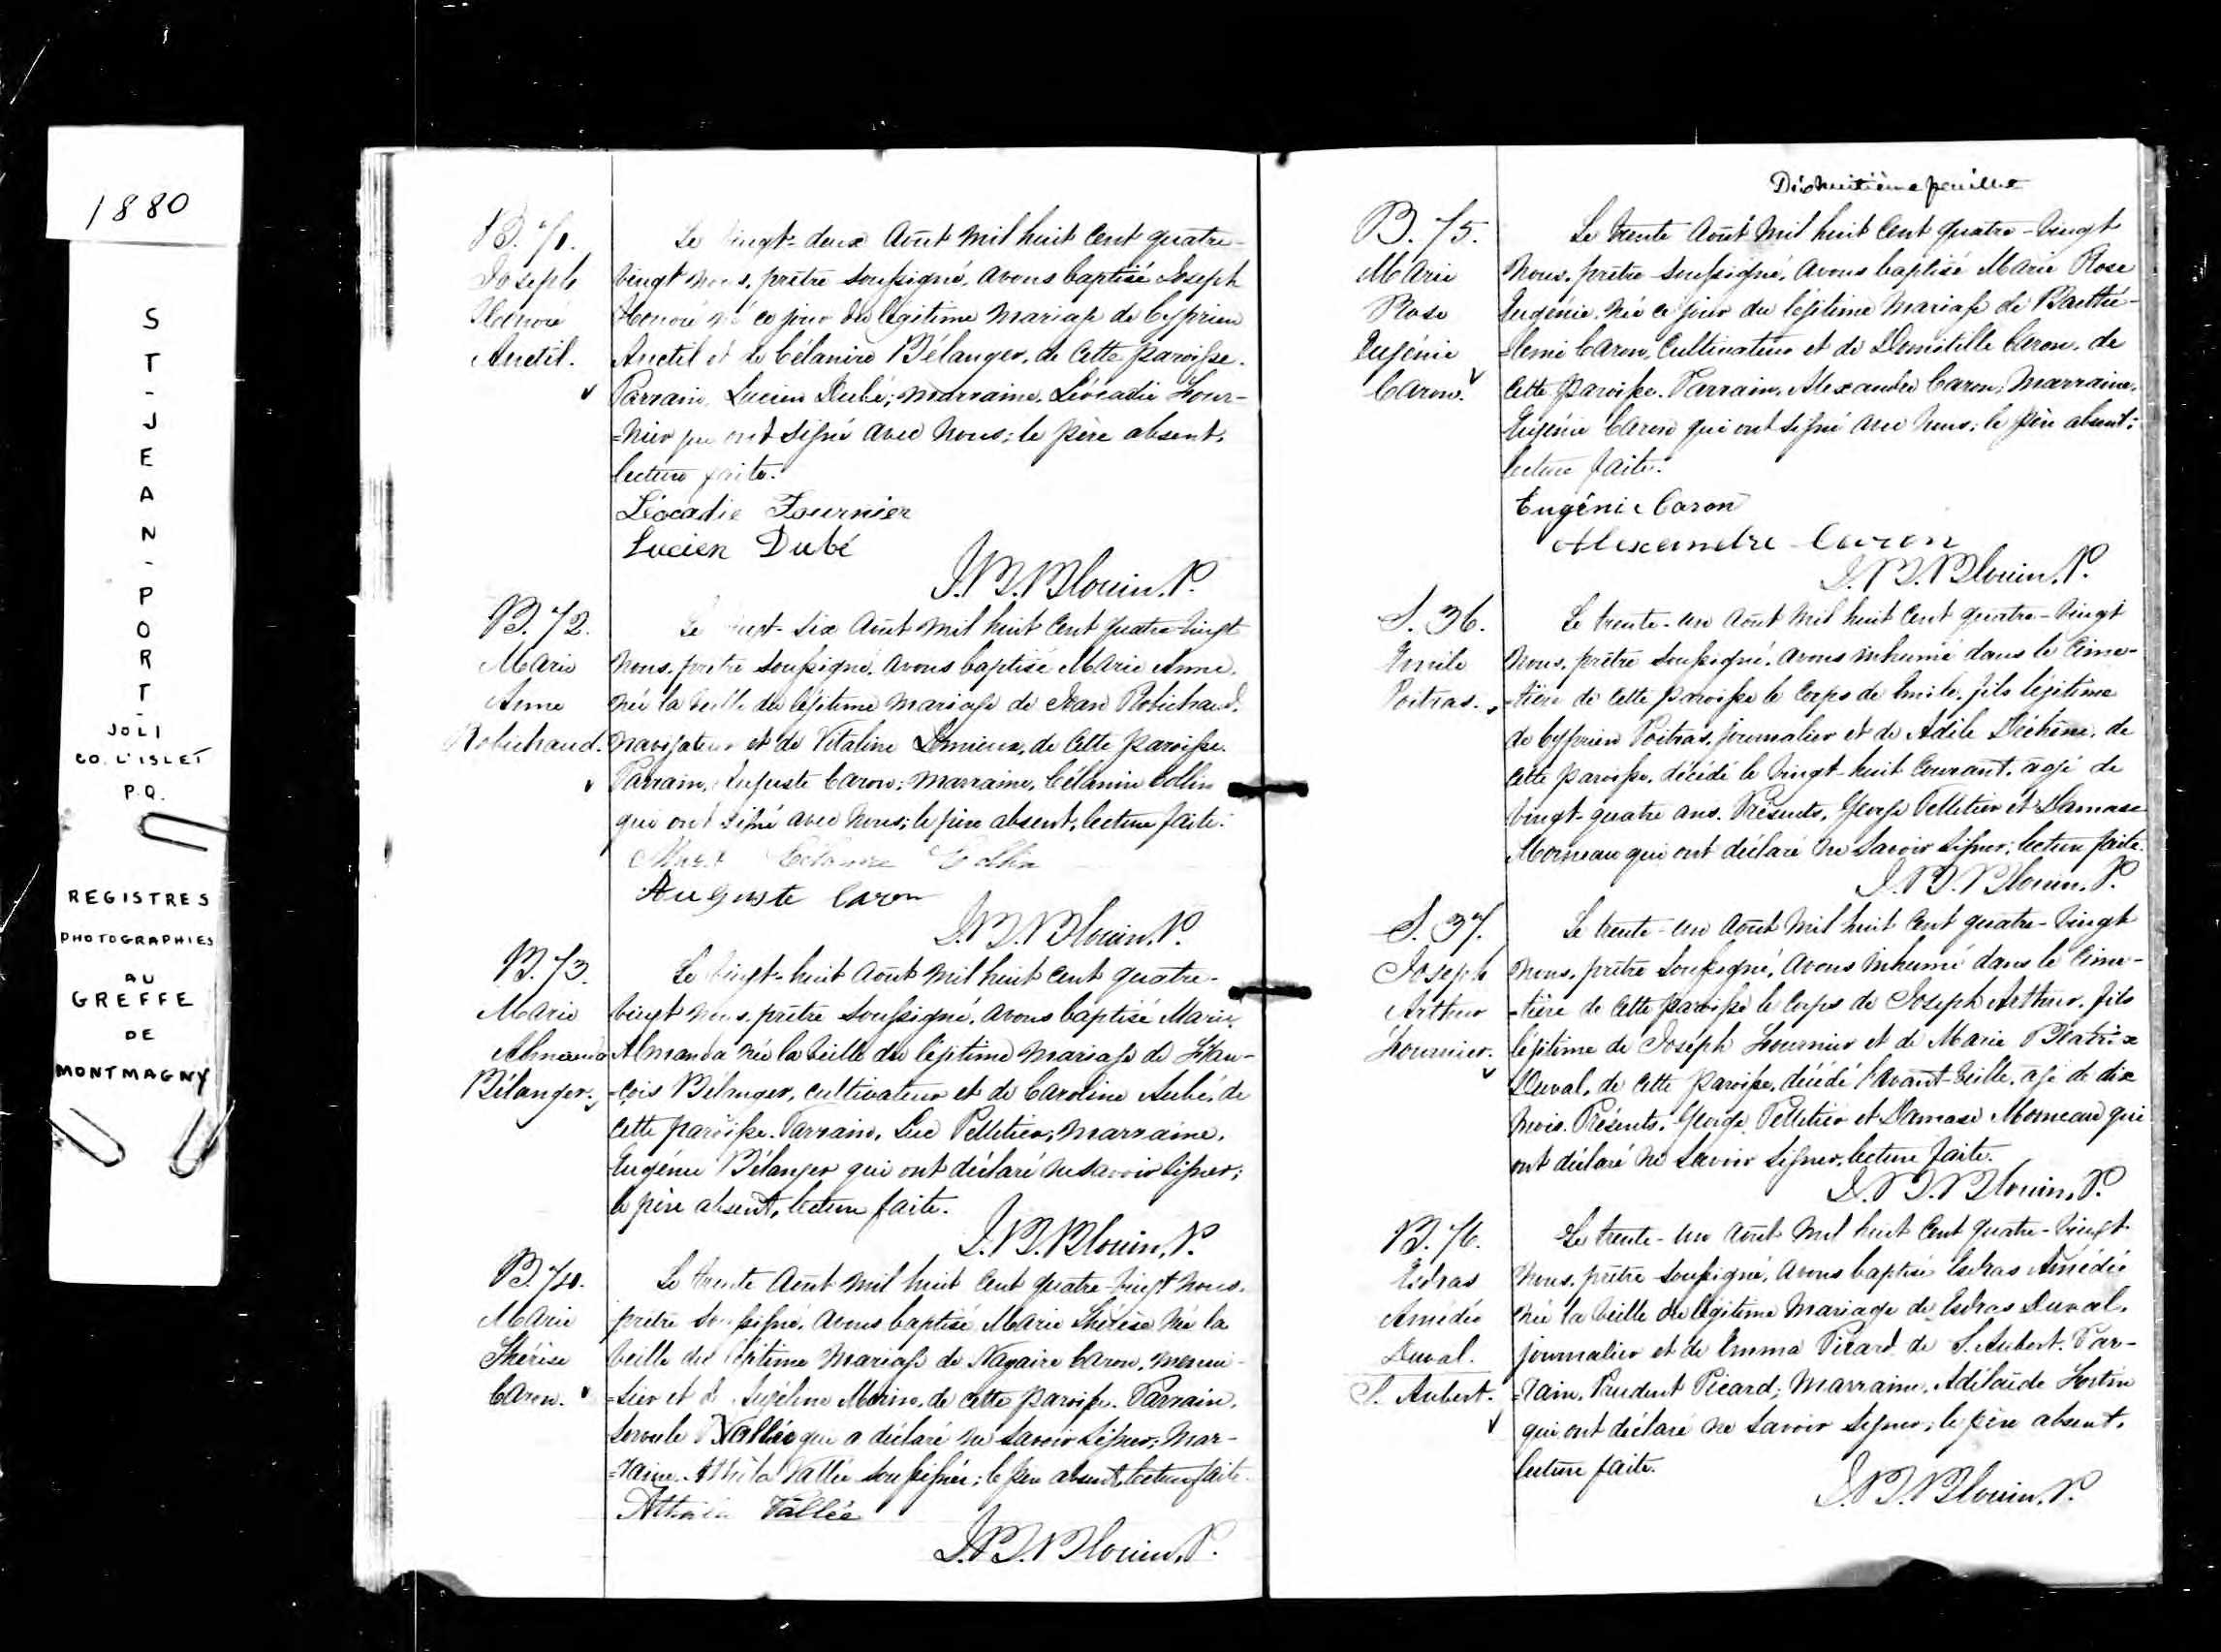 1880
ST-JEAN-PORT-
JOLI
CO. L'ISLET
P.Q.
REGISTRES
PHOTOGRAPHIES
AU
GREFFE
DE
MONTMAGNY
B. 71.
Joseph
Honoré
Anctil.
Le vingt-deux Août mil huit cent quatre-
vingt nous, prêtre soussigné, avons baptisé Joseph
Honoré né ce jour du légitime mariage de Cyprien
Anctil et de Célanire Bélanger, de cette paroisse.
Parrain, Lucien Dubé; marraine, Léocadie Four-
=nier qui ont signé avec nous; le père absent,
lecture faite.
Léocadie Fournier
Lucien Dubé
J.B.Blouin, P.
B. 72.
Marie
Anne
Robichaud.
Le vingt-six Août mil huit cent quatre-vingt
nous, prêtre soussigné, avons baptisé Marie Anne,
née la veille du légitime mariage de Jean Robichaud,
navigateur et de Vitaline Lemieux, de cette paroisse.
Parrain, Auguste Caron; marraine, Célanire Collin
qui ont signé avec nous; le père absent, lecture faite.
Célanire Collin
Auguste Caron
J.B.Blouin, P.
B. 73.
Marie
Almanda
Bélanger.
Le vingt-huit Août mil huit cent quatre-
vingt nous, prêtre soussigné, avons baptisé Marie
Almanda née la veille du légitime mariage de Fran-
=çois Bélanger, cultivateur et de Caroline Aubé, de
cette paroisse. Parrain, Luc Pelletier; marraine,
Eugénie Bélanger qui ont déclaré ne savoir signer;
le père absent, lecture faite.
J.B.Blouin, P.
B. 74.
Marie
Thérèse
Caron.
Le trente Août mil huit cent quatre-vingt nous,
prêtre soussigné, avons baptisé Marie Thérèse née la
veille du légitime mariage de Nazaire Caron, menui-
=sier et d' Angéline Morin, de cette paroisse. Parrain,
Servule Vallée qui a déclaré ne savoir signer; mar-
=raine, Vallée soussignée; le père absent, lecture faite.
Vallée
J.B.Blouin, P.
Dixhuitième feuillet
B. 75.
Marie
Rose
Eugénie
Caron.
Le trente Août mil huit cent quatre-vingt
nous, prêtre soussigné, avons baptisé Marie Rose
Eugénie, née ce jour du légitime mariage de Barthé-
=lemi Caron, cultivateur et de Domitille Caron, de
cette paroisse. Parrain, Alexandre Caron; marraine,
Eugénie Caron qui ont signé avec nous; le père absent;
lecture faite.
Eugénie Caron
Alexandre Caron
J.B.Blouin, P.
S. 36.
Emile
Poitras.
Le trente-un Août mil huit cent quatre-vingt
nous, prêtre soussigné, avons inhumé dans le cime-
=tière de cette paroisse le corps de Emile, fils légitime
de Cyprien Poitras, journalier et de Adèle Dechêne, de
cette paroisse, décédé le vingt-huit courant, agé de
vingt-quatre ans. Présents, George Pelletier et Damase
Morneau qui ont déclaré ne savoir signer; lecture faite.
J.B.Blouin, P.
S. 37.
Joseph
Arthur
Fournier.
Le trente-un Août mil huit cent quatre-vingt
nous, prêtre soussigné, avons inhumé dans le cime-
=tière de cette paroisse le corps de Joseph Arthur, fils
légitime de Joseph Fournier et de Marie Béatrix
Duval, de cette paroisse, décédé l'avant-veille, agé de dix
mois. Présents, George Pelletier et Damase Morneau qui
ont déclaré ne savoir signer, lecture faite.
J.B.Blouin, P.
B. 76.
Esdras
Amédée
Duval.
S. Aubert.
Le trente-un Août mil huit cent quatre-vingt
nous, prêtre soussigné, avons baptisé Esdras Amédée
née la veille du légitime mariage de Esdras Duval,
journalier et de Emma Picard de S. Aubert. Par-
=rain, Prudent Picard; marraine, Adélaïde Fortin
qui ont déclaré ne savoir signer; le père absent,
lecture faite.
J.B.Blouin, P.